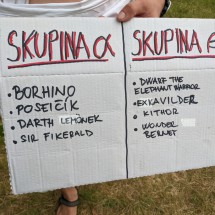 SKUPINA α
• BORHINO
• POSEIČÍK
• DARTH LEMONEK
• SIR FIKEBALD
SKUPINA β
• DWARF THE
ELEPHANT WARRIOR
• EXKAVILDER
• KITHOR
• WONDER
BERNET